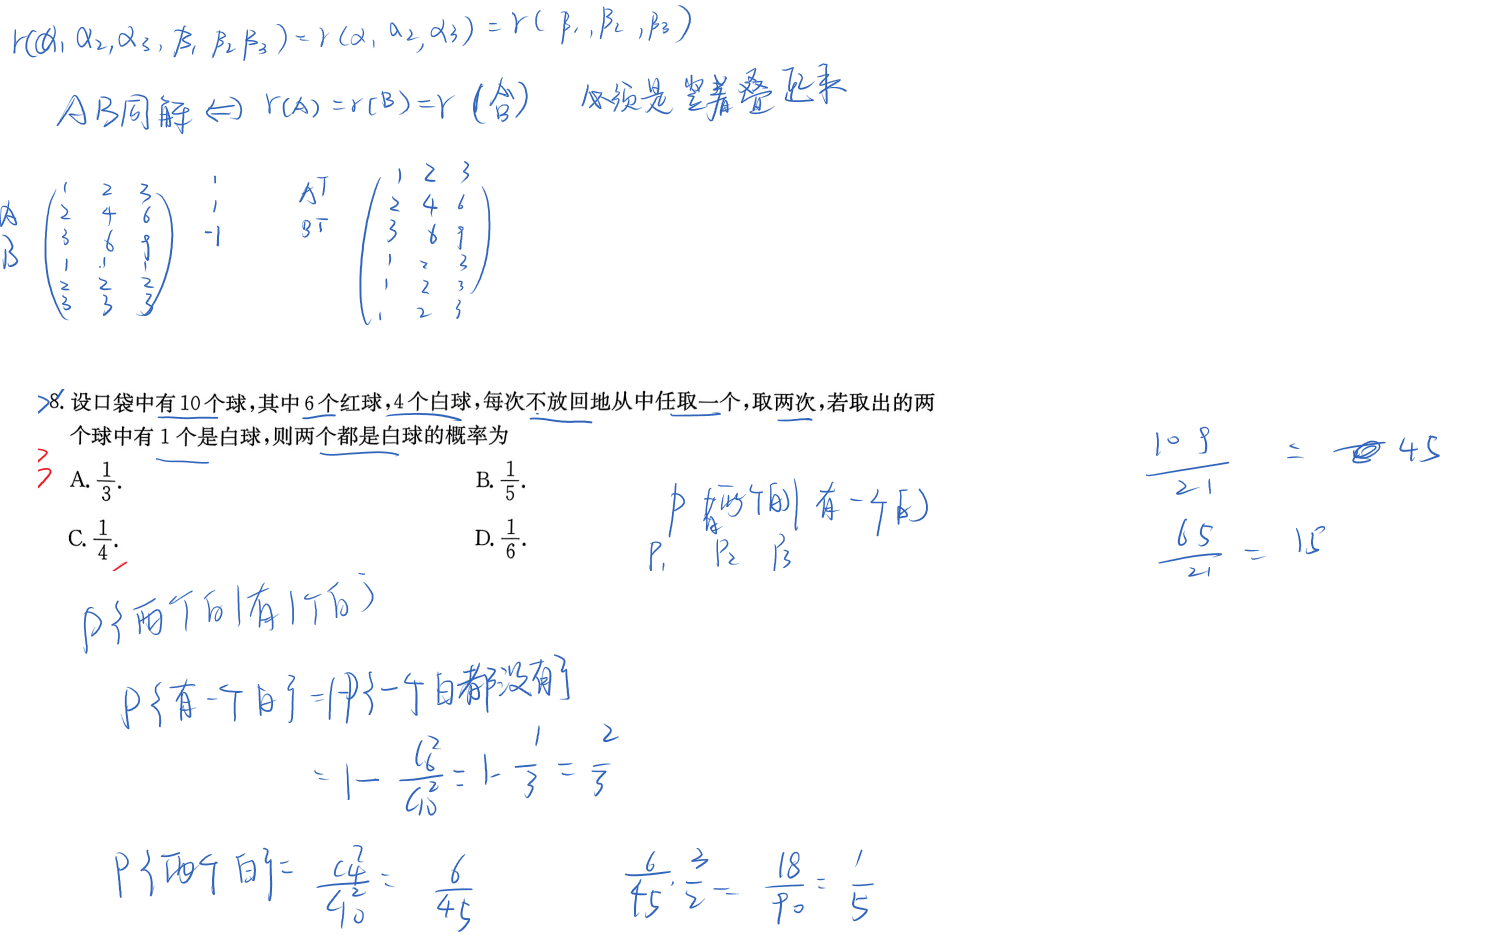 r(α₁ α₂,α₃, β₁ β₂ β₃) = r(α₁ α₂,α₃) = r( β₁,β₂,β₃)
AB同解 ⇔ r(A)=r(B)=r(A/B) 必须是竖着叠起来
A B
1 2 3
2 4 6
3 6 9
1 1 1
2 2 2
3 3 3
1
1
-1
Aᵀ
Bᵀ
1 2 3
2 4 6
3 6 9
1 2 3
1 2 3
1 2 3
8. 设口袋中有10个球,其中6个红球,4个白球,每次不放回地从中任取一个,取两次,若取出的两
个球中有1个是白球,则两个都是白球的概率为
A. 1/3.
B. 1/5.
C. 1/4.
D. 1/6.
P(有两个白|有一个白)
P₁ P₂ P₃
10 9/21 = 45
6 5/21 = 15
P{两个白|有1个白}
P{有一个白}=1-P{一个白都没有}
= 1 - C₆²/C₁₀² = 1 - 1/3 = 2/3
P{两个白} = C₄²/C₁₀² = 6/45
6/45 · 3/2 = 18/90 = 1/5